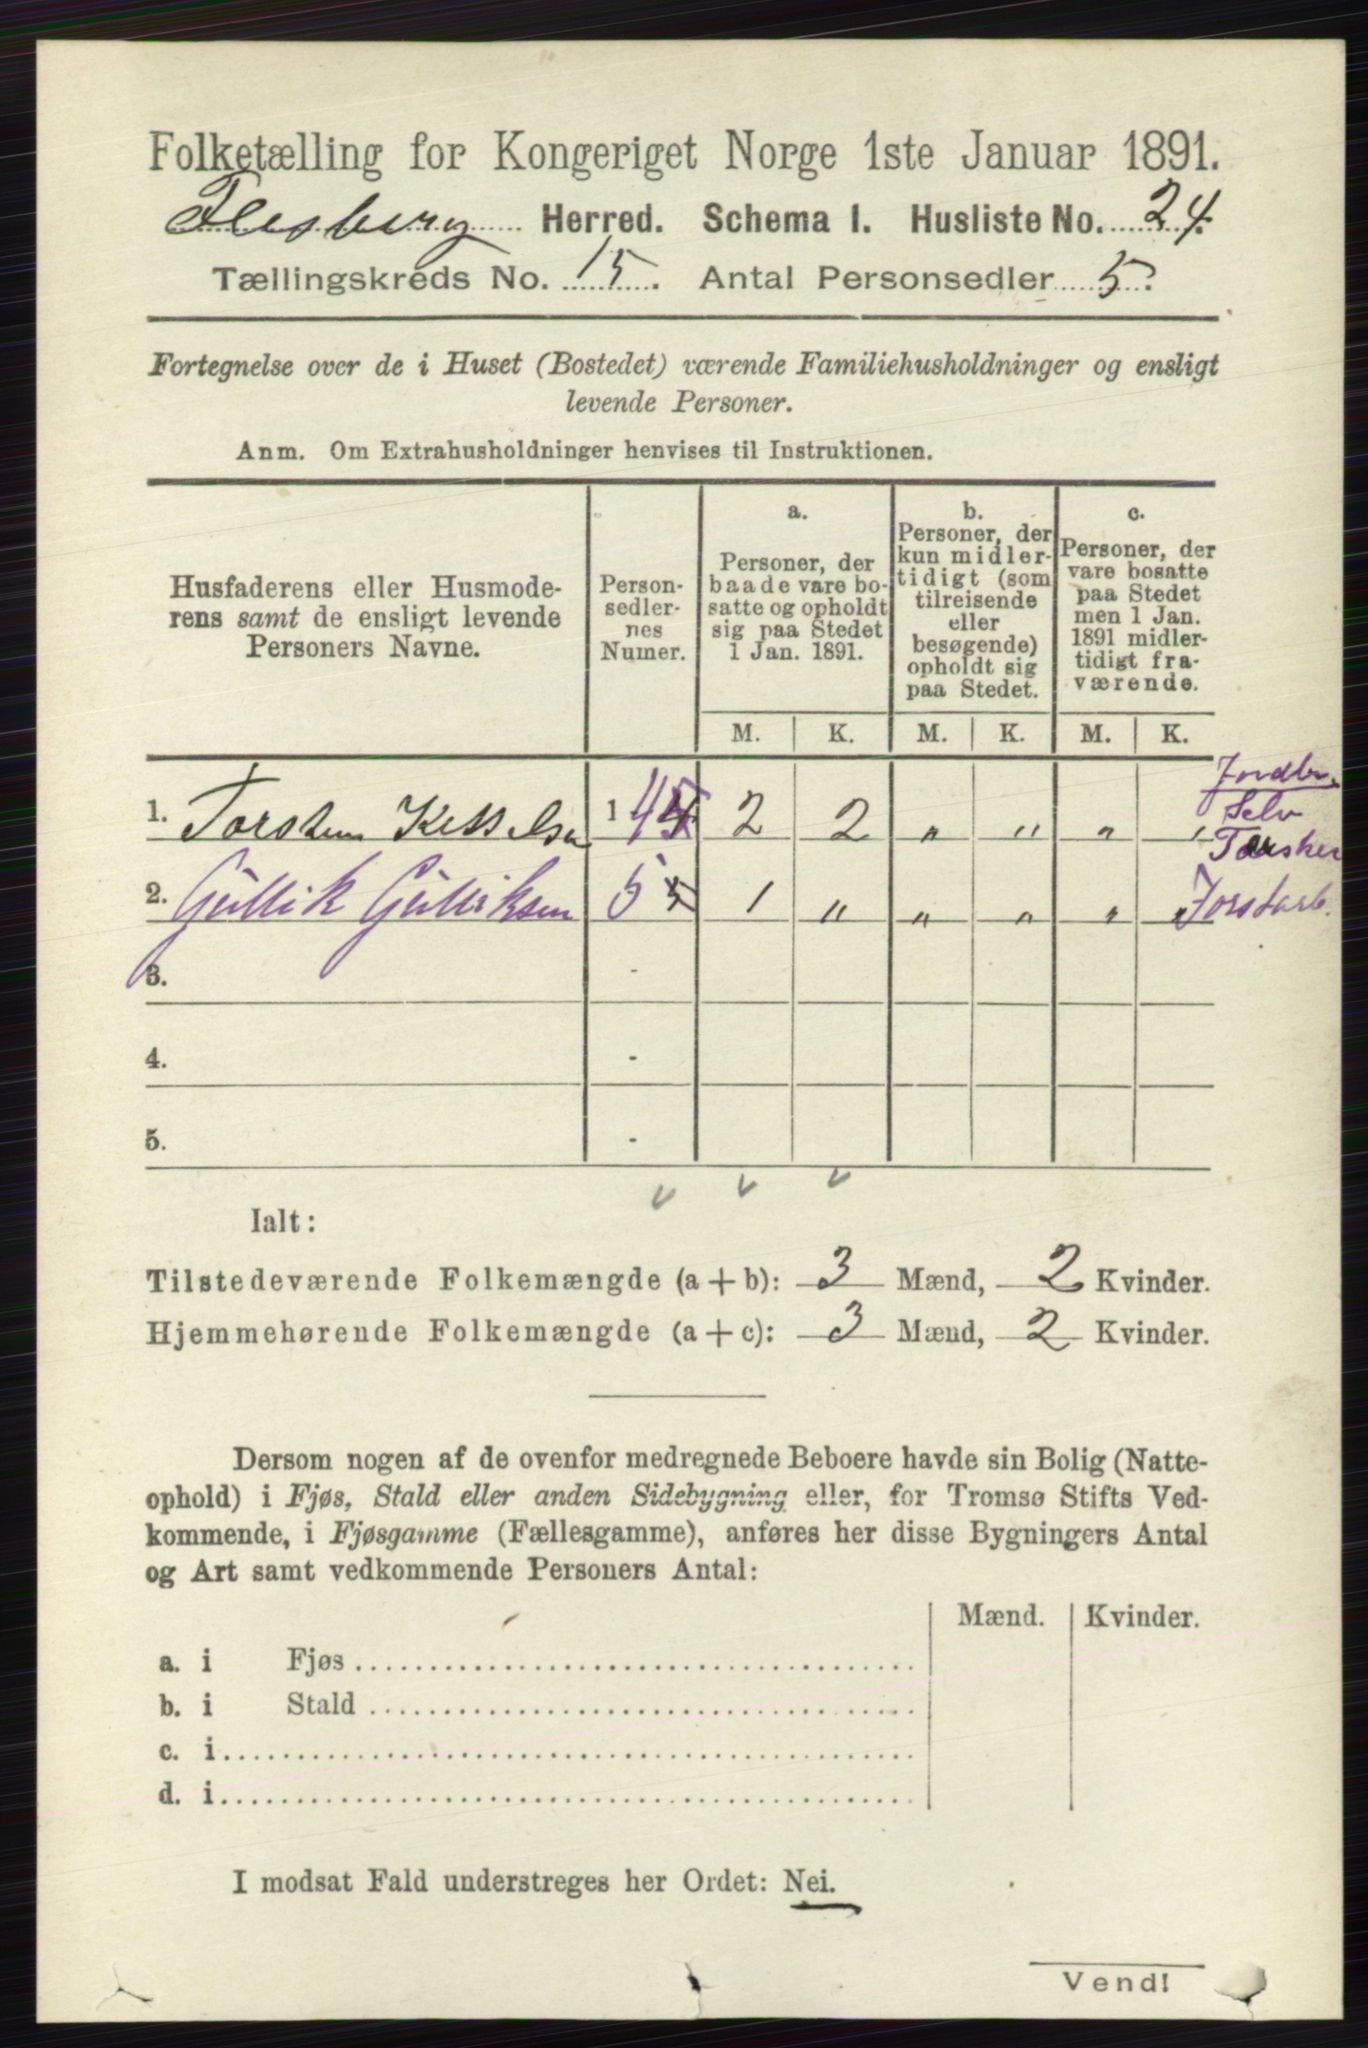 Folketælling for Kongeriget Norge 1ste Januar 1891.
Flesberg Herred. Schema I. Husliste No. 24.
Tællingskreds No. 15. Antal Personsedler 5.
Fortegnelse over de i Huset (Bostedet) værende Familiehusholdninger og ensligt
levende Personer.
Anm. Om Extrahusholdninger henvises til Instruktionen.
Husfaderens eller Husmode-
rens samt de ensligt levende
Personers Navne.
Person-
sedler-
nes
Numer.
a.
Personer, der
baade vare bo-
satte og opholdt
sig paa Stedet
1 Jan. 1891.
b.
Personer, der
kun midler-
tidigt (som
tilreisende
eller
besøgende)
opholdt sig
paa Stedet.
c.
Personer, der
vare bosatte
paa Stedet
men 1 Jan.
1891 midler-
tidigt fra-
værende.
M. K. M. K. M. K.
Jordbr.
Selv
1. Torsten Kittilsen 1 4 2 2 " " " "
Tarsker
2. Gullik Gulliksen 5 1 " " " " " Forstarb.
3. -
4. -
5. -
Ialt:
Tilstedeværende Folkemængde (a + b): 3 Mænd, 2 Kvinder.
Hjemmehørende Folkemængde (a + c): 3 Mænd, 2 Kvinder.
Dersom nogen af de ovenfor medregnede Beboere havde sin Bolig (Natte-
ophold) i Fjøs, Stald eller anden Sidebygning eller, for Tromsø Stifts Ved-
kommende, i Fjøsgamme (Fællesgamme), anføres her disse Bygningers Antal
og Art samt vedkommende Personers Antal:
Mænd. Kvinder.
a. i Fjøs
b. i Stald
c. i
d. i
I modsat Fald understreges her Ordet: Nei.
Vend!